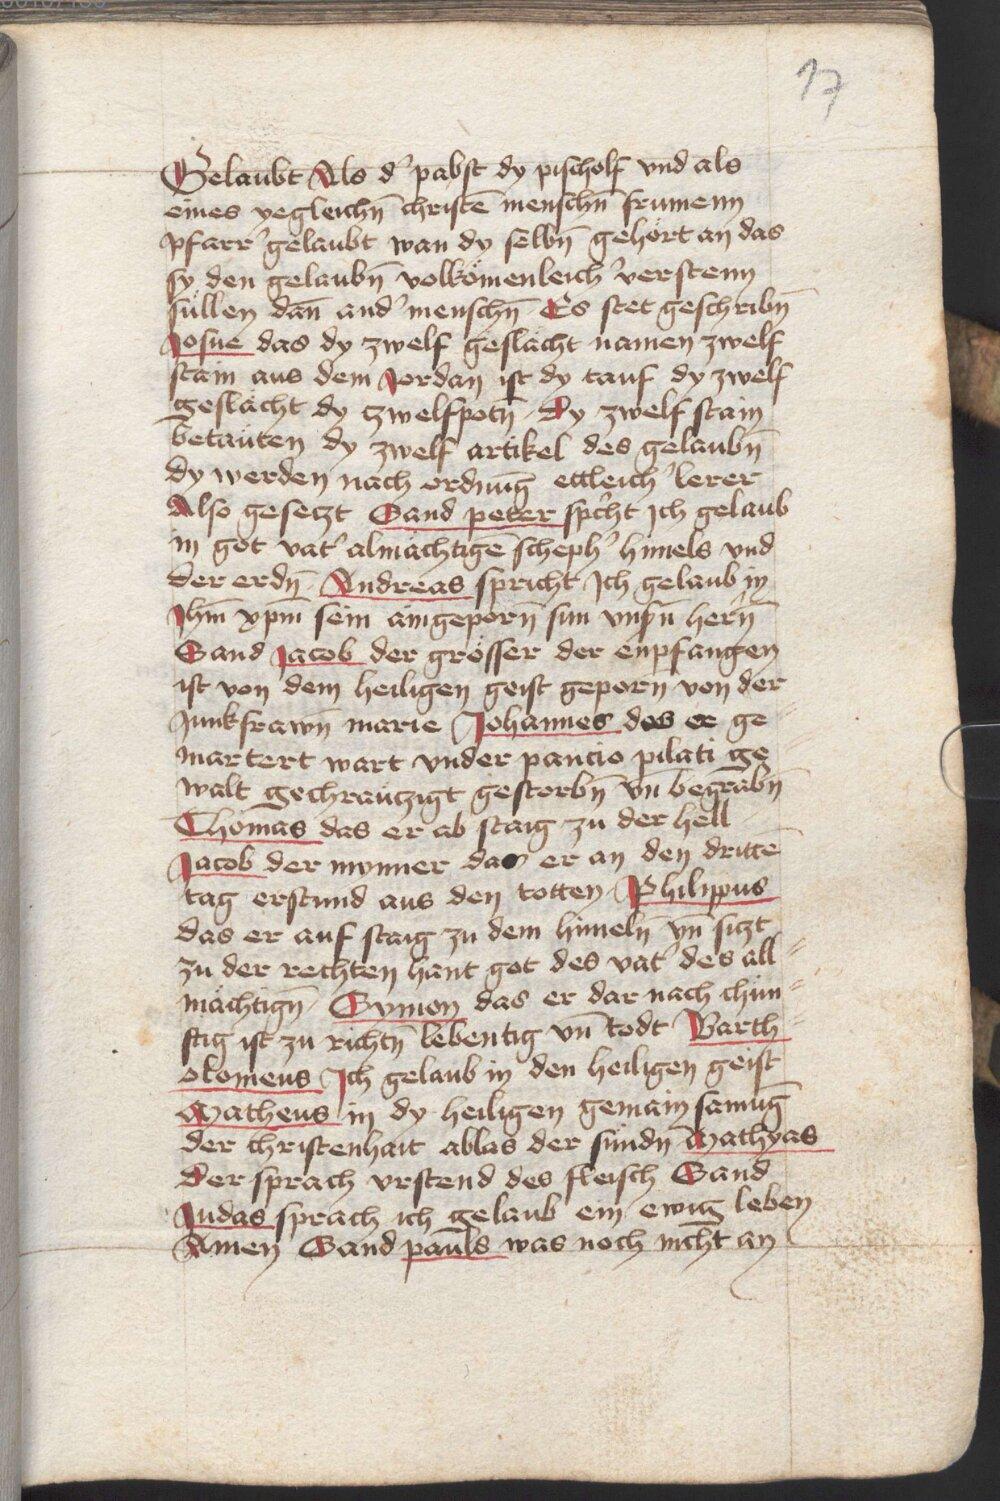 17
Gelaubt Als d' pabst dy pischolf vnd als
eines yegleichn̄ christē menschn̄ frumenn
pfarr' gelaubt wan dy selbn̄ gehört an das
sy den gelaubn̄ volkömenleich' verstenn
süllen dan̄ and' menschn̄ Es stet geschribn̄
Josue das dy zwelf geslächt namen zwelf
stain aus dem Jordan ist dy tauf dy zwelf
geslächt dy tzwelfpotn̄ Dy zwelf stain
betäuten dy zwelf artikel des gelaubn̄
dy werden nach ordnūg ettleich' lerer
Also gesetzt Sand peter sp̄cht Ich gelaub
in got vat' almächtigē scheph' himels vnd
der erdn̄ Andreas spricht Ich gelaub in
Jhm̄ xpm̄ sein aingeporn̄ sun vnsn̄ hern̄
Sand Jacob der grösser der enpfangen
ist von dem heiligen geist geporn von der
Junkfrawn̄ marie Johannes des er ge
martert wart vnder pancio pilati ge
walt gechräutzigt gestorbn̄ vn̄ begrabn̄
Thomas das er ab staig zu der hell
Jacob der mynner das er an den drittē
tag erstund aus den totten Philippus
das er auf staig zu dem himeln̄ vn̄ sitzt
zu der rechten hant got des vat' des all
mächtign̄ Symon das er dar nach chün
ftig ist zu richtn̄ lebentig vn̄ todt Barth
olomeus Ich gelaub in den heiligen geist
Matheus in dy heiligen gemain samūg
der christenhait ablas der sündn Mathyas
der sprach vrstend des fleisch Sand
Judas sprach ich gelaub ein ewig leben
Amen Sand pauls was noch nicht an